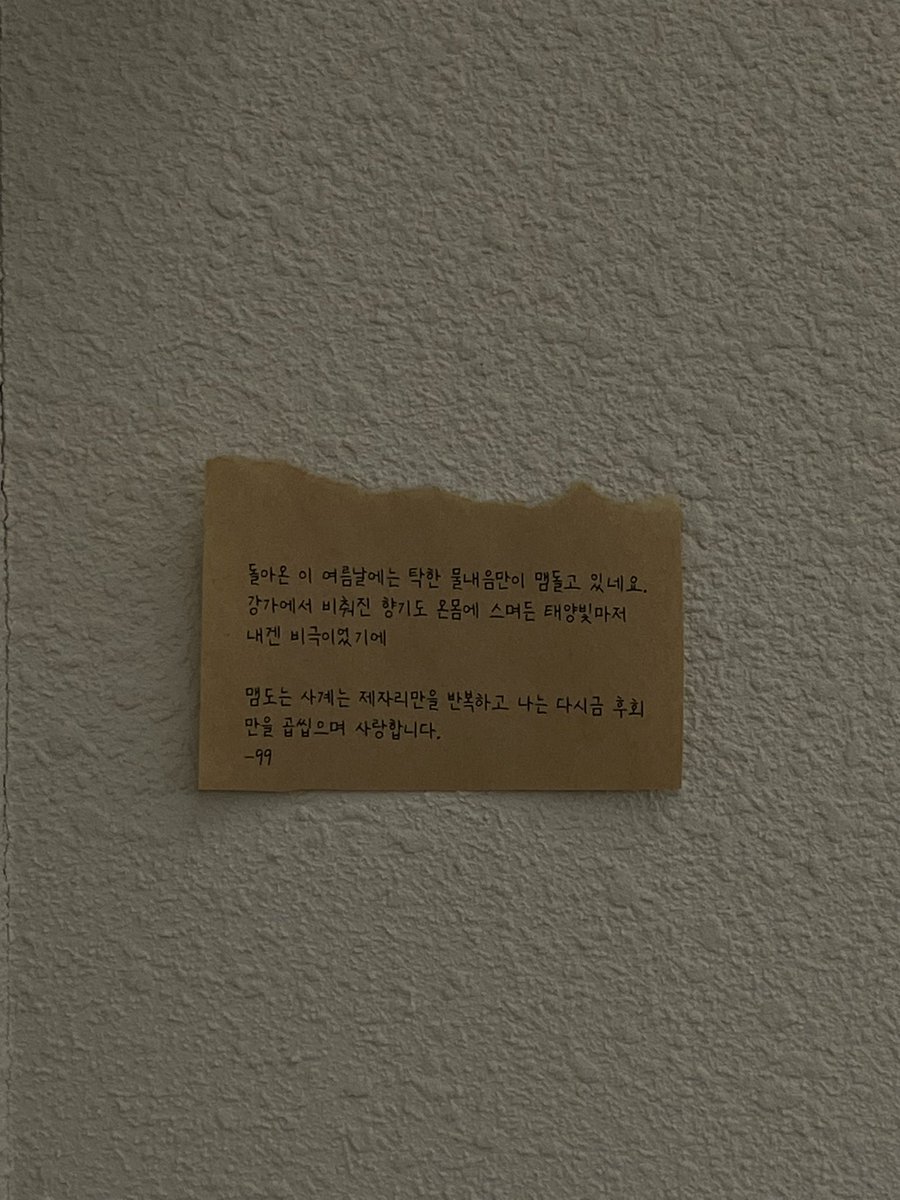 돌아온 이 여름날에는 탁한 물내음만이 맴돌고 있네요.
강가에서 비춰진 향기도 온몸에 스며든 태양빛마저
내겐 비극이었기에
맴도는 사계는 제자리만을 반복하고 나는 다시금 후회
만을 곱씹으며 사랑합니다.
-99